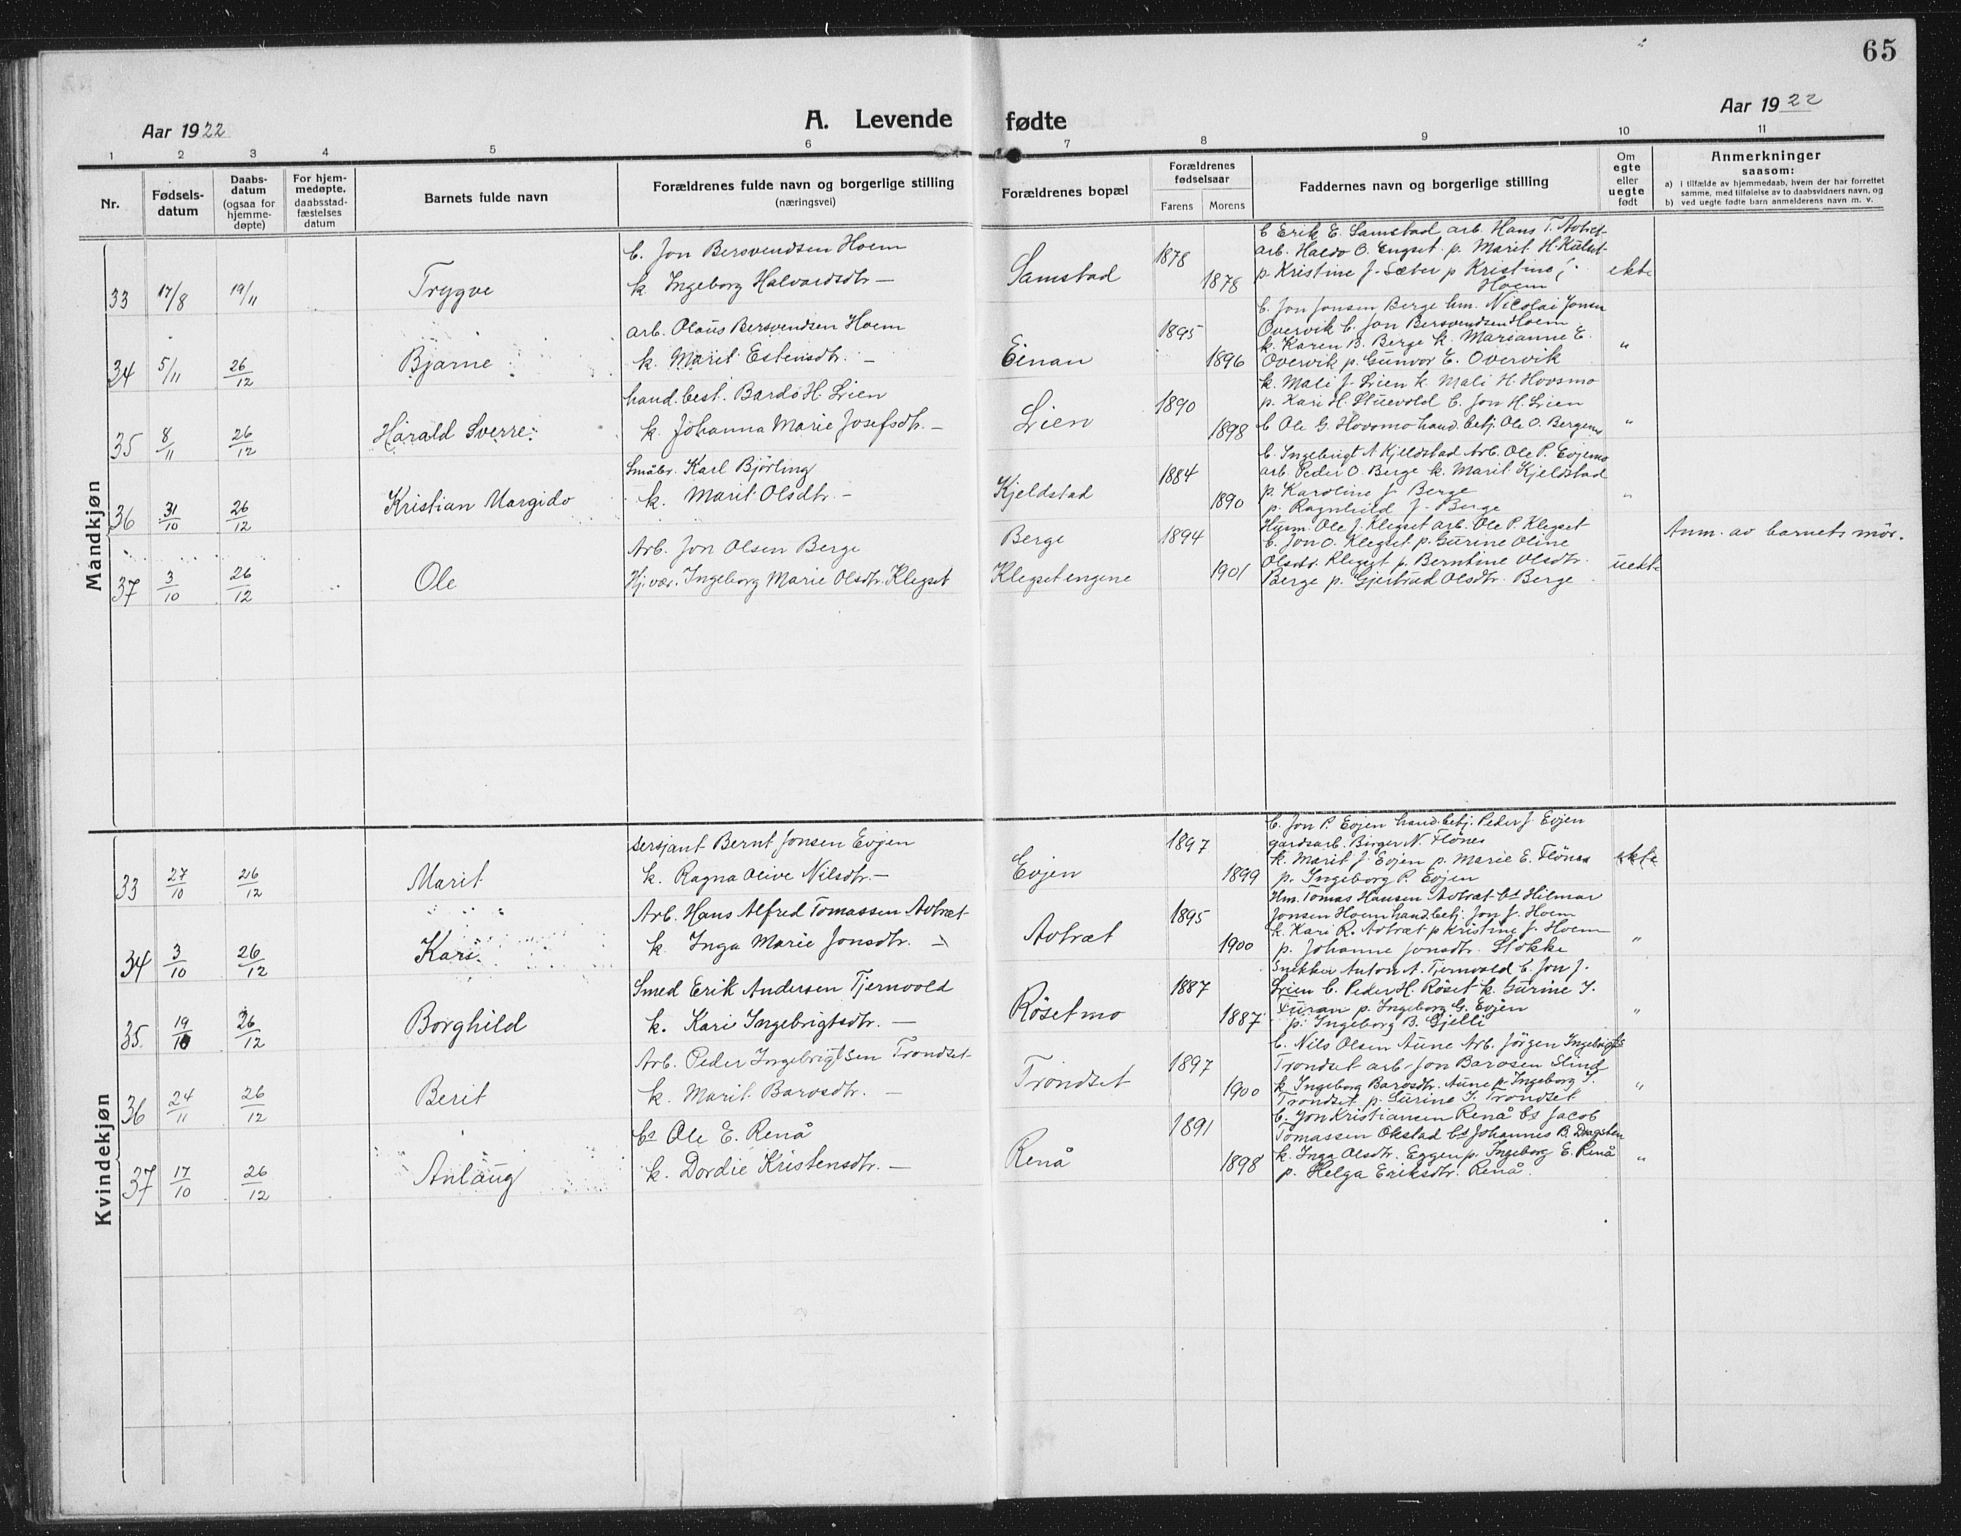 65
Aar 1922
A. Levende fødte
Aar 1922
1 2 3 4 5 6 7 8 9 10 11
Nr.
Fødsels-
datum
Daabs-
datum
(ogsaa for
hjemme-
døpte)
For hjem-
medøpte,
daabsstad-
fæstelses
datum
Barnets fulde navn
Forældrenes fulde navn og borgerlige stilling
(næringsvei)
Forældrenes bopæl
Forældrenes
fødselsaar
Farens Morens
Faddernes navn og borgerlige stilling
Om
egte
eller
uegte
født
Anmerkninger
saasom:
a) i tilfælde av hjemmedaab, hvem der har forrettet
samme, med tilføielse av to daabsvidners navn, og
b) ved uegte fødte barn anmelderens navn m. v.
Mandkjøn
33 17/8 19/11 Trygve
b. Jon Bersvendsen Hoem
k. Ingeborg Halvardsdtr. —
Samstad 1878 1878
b Erik E. Samstad arb. Hans T. Avtræt
arb. Haldo O. Engset p. Marit H. Kulset
p Kristine J. Sæter p Kristine J.
Hoem
ekte
34 5/11 26/12 Bjarne
arb. Olaus Bersvendsen Hoem
k. Marit Estensdtr. —
Einan 1895 1896
b. Jon Jonsen Berge hm. Nicolai Jonsen
Overvik b. Jon Bersvendsen Hoem
k. Karen B. Berge k. Marianne E.
Overvik p. Gunvor E. Overvik
"
35 8/11 26/12 Harald Sverre
hand.best. Bardo H. Lien
k. Johanna Marie Josefsdtr. —
Lien 1890 1898
k. Mali J. Lien k. Mali H. Hovsmo
p. Kari H. Stuevold b. Jon H. Lien
b Ole G. Hovsmo hand.betj. Ole O. Bergem
"
36 31/10 26/12 Kristian Margido
Småbr. Karl Bjørling
k. Marit Olsdtr. —
Kjeldstad 1884 1890
b. Ingebrigt A Kjeldstad Arb. Ole P. Evjemo
arb. Peder O. Berge k. Marit Kjeldstad
p. Karoline J. Berge
p. Ragnhild J. Berge
"
37 3/10 26/12 Ole
Arb. Jon Olsen Berge
Hj.vær. Ingeborg Marie Olsdtr. Klegset
Berge
Klegsetengene 1894 1901
Husm. Ole J. Klegset arb. Ole P. Klegset
b. Jon O. Klegset p. Gurine Oline
Olsdtr. Klegset p. Berntine Olsdtr.
Berge p. Gjertrud Olsdtr. Berge
uekte
Anm. av barnets mor.
Kvindekjøn
33 27/10 26/12 Marit
Sersjant Bernt Jonsen Evjen
k. Ragna Olive Nilsdtr. —
Evjen 1897 1899
b. Jon P. Evjen hand.betj. Peder J. Evjen
gardsarb. Birger N. Flönes
k. Marit J. Evjen p. Marie E. Flönes
p. Ingeborg P. Evjen
ekte
34 3/10 26/12 Kari
Arb. Hans Alfred Tomassen Avtræt
k. Inga Marie Jonsdtr. —
Avtræt 1895 1900
Hm. Tomas Hansen Avtræt bs Hilmar
Jonsen Hoem hand.betj. Jon J. Hoem
k. Kari R. Avtræt p Kristine J. Hoem
p. Johanne Jonsdtr. Stokke
"
35 19/10 26/12 Borghild
Smed Erik Andersen Tjernvold
k. Kari Ingebrigtsdtr. —
Rösetmo 1887 1887
Snekker Anton A. Tjernvold b. Jon J.
Lien b. Peder H. Röset k. Gurine I.
Furan p. Ingeborg G. Evjen
p. Ingeborg B. Gjelli
"
36 24/11 26/12 Berit
Arb. Peder Ingebrigtsen Trondset
k. Marit Barosdtr. —
Trondset 1897 1900
b. Nils Olsen Aune Arb. Jörgen Ingebrigts
Trondset arb. Jon Barosen Slind
k Ingeborg Barosdtr. Aune p. Ingeborg I.
Trondset p. Gurine I. Trondset
"
37 17/10 26/12 Anlaug
bs Ole E. Renå
k. Dordie Kristensdtr. —
Renå 1891 1898
b. Jon Kristiansen Renå bs Jacob
Tomassen Okstad bs Johannes B. Dragsten
k. Inga Olsdtr. Eggen p. Ingeborg E. Renå
p. Helga Eriksdtr. Renå.
"